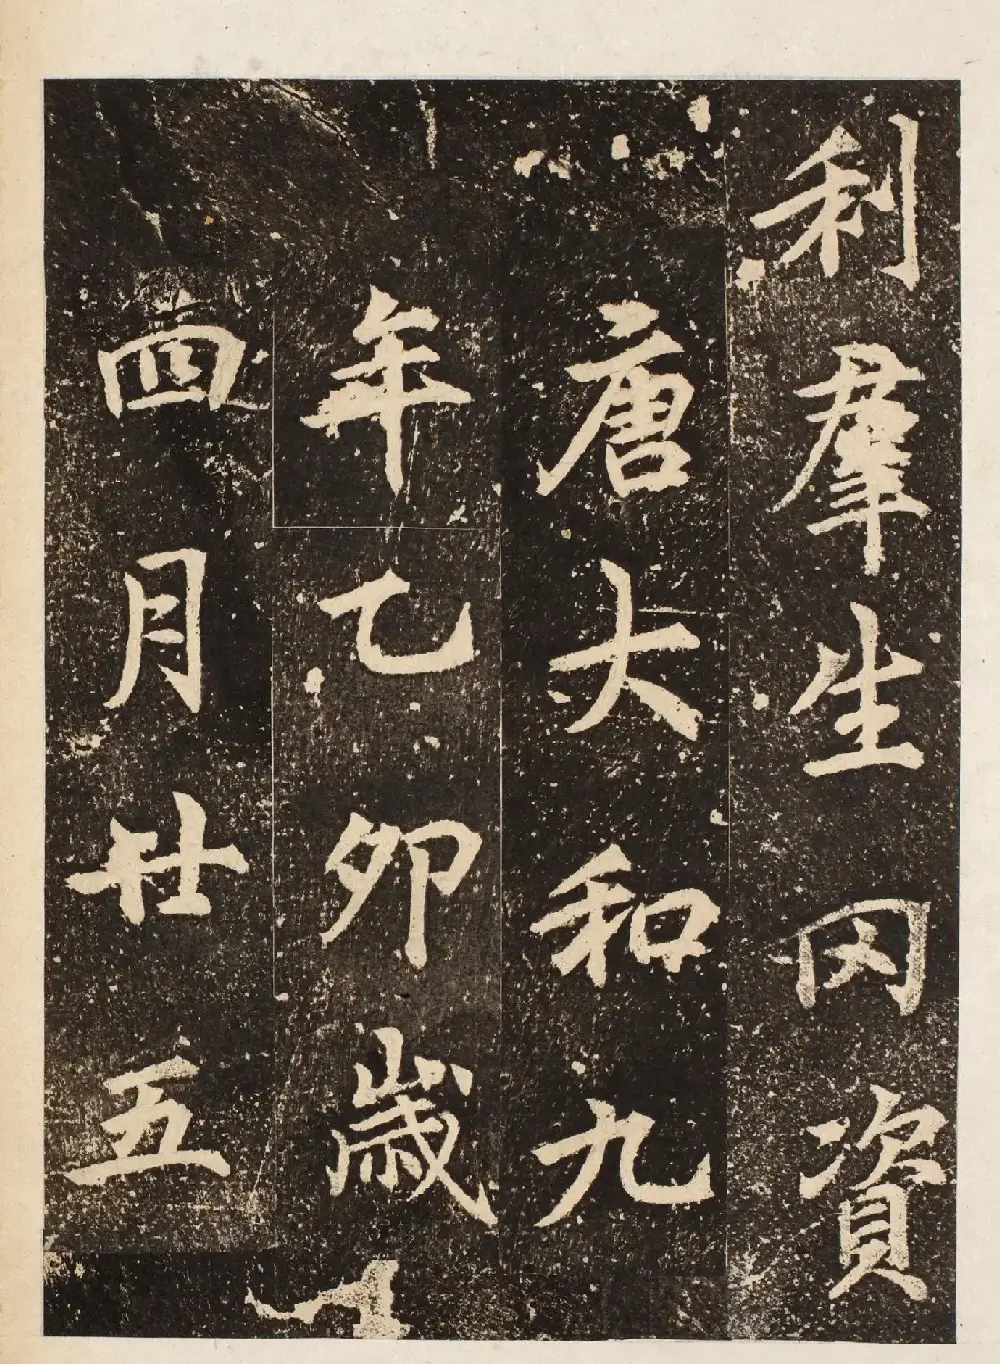 利羣生資
唐大和九
年乙卯歲
四月廿五